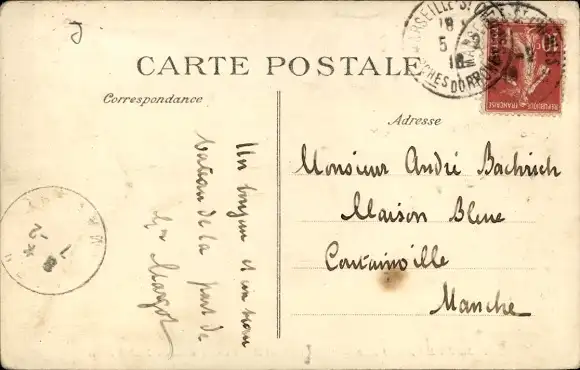 CARTE POSTALE
Correspondance
Adresse
Un bonjour et un
de la part de
Margot
Monsieur André Bachrich
Maison Bleue
Coutainville
Manche
MARSEILLE
18
5
BOUCHES DU RHONE
10
REPUBLIQUE FRANÇAISE